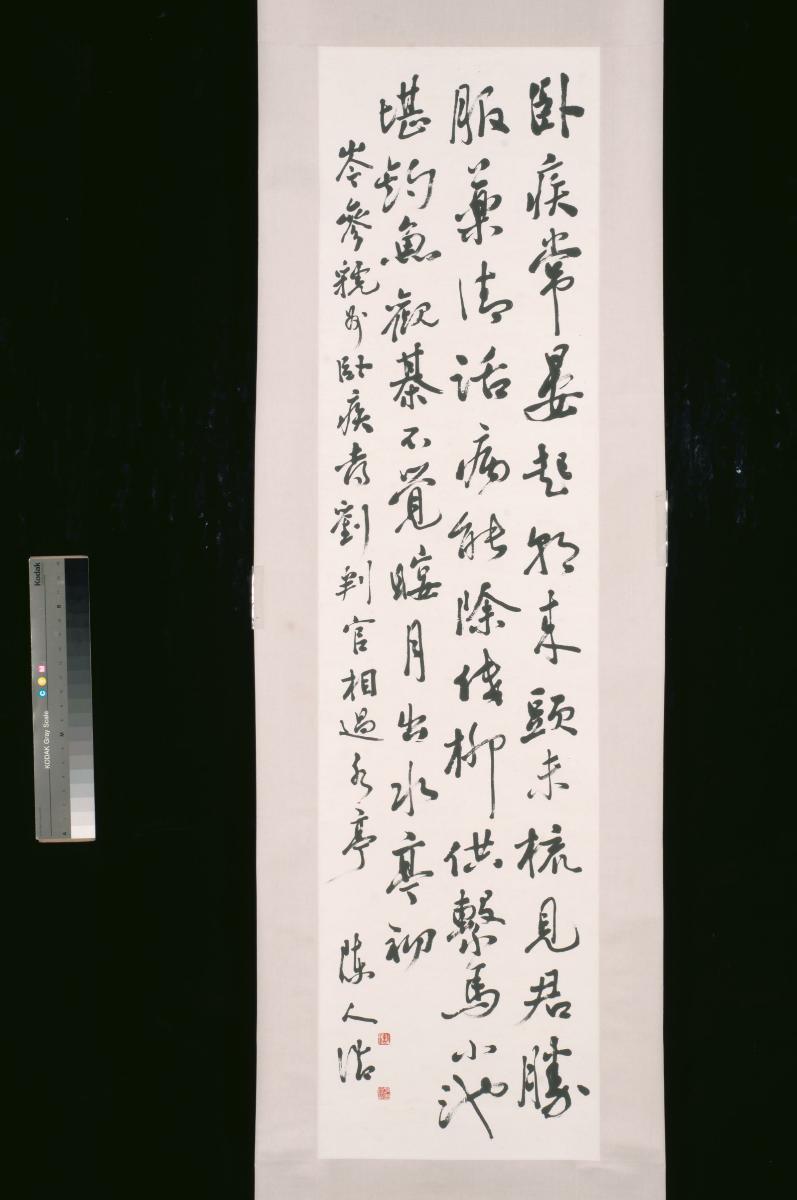 卧疾常晏起朝來頭未梳見君勝
服藥清話病能除低柳供繫馬小池
堪釣魚觀棊不覺暝月出水亭初
岑參虢州卧疾喜劉判官相過水亭 陳人浩
Kodak
KODAK Gray Scale
C Y M
A M B